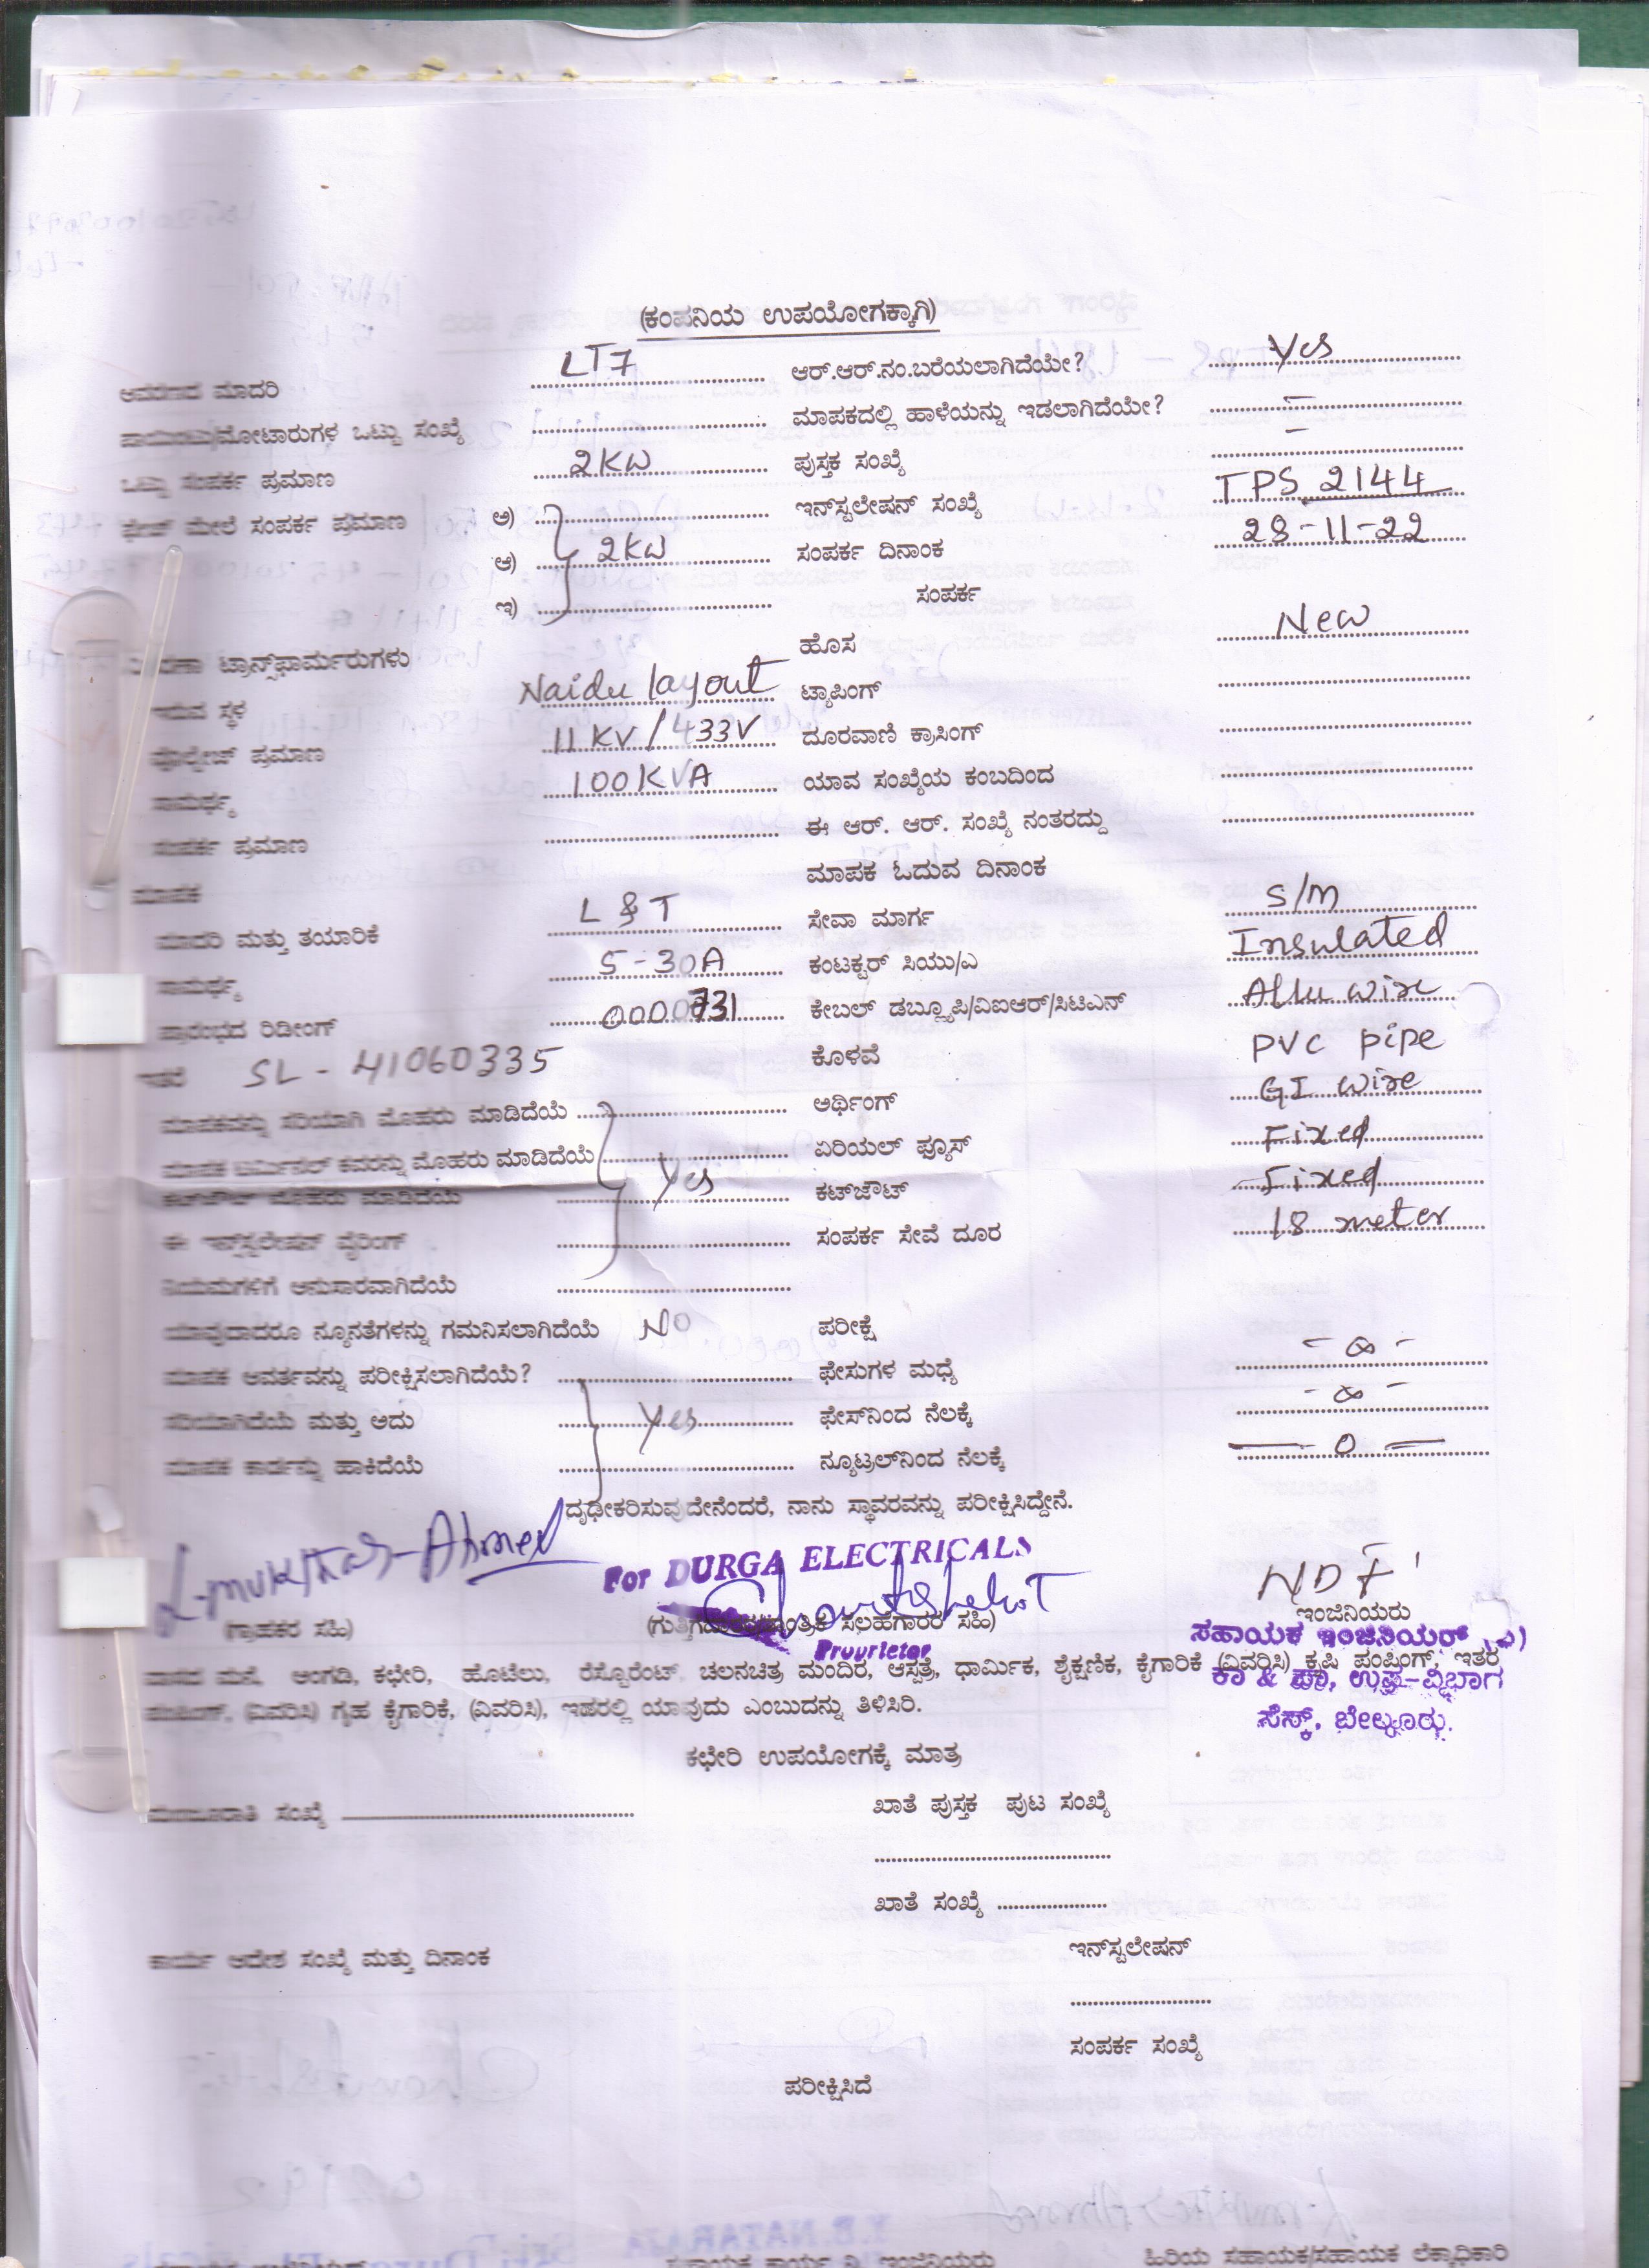 (ಕಂಪನಿಯ ಉಪಯೋಗಕ್ಕಾಗಿ)
ಆವರಣದ ಮಾದರಿ LT7 ಆರ್.ಆರ್.ನಂ.ಬರೆಯಲಾಗಿದೆಯೇ? Yes
ಪಾಯಿಂಟು/ಮೋಟಾರುಗಳ ಒಟ್ಟು ಸಂಖ್ಯೆ ಮಾಪಕದಲ್ಲಿ ಹಾಳೆಯನ್ನು ಇಡಲಾಗಿದೆಯೇ? –
ಒಟ್ಟು ಸಂಪರ್ಕ ಪ್ರಮಾಣ 2KW ಪುಸ್ತಕ ಸಂಖ್ಯೆ –
ಫೇಜ್ ಮೇಲೆ ಸಂಪರ್ಕ ಪ್ರಮಾಣ ಅ) ಇನ್‌ಸ್ಟಲೇಷನ್ ಸಂಖ್ಯೆ TPS 2144
ಆ) 2KW ಸಂಪರ್ಕ ದಿನಾಂಕ 28-11-22
ಇ) ಸಂಪರ್ಕ
ಟ್ರಾನ್ಸ್‌ಫಾರ್ಮರುಗಳು ಹೊಸ New
ಇರುವ ಸ್ಥಳ Naidu layout ಟ್ಯಾಪಿಂಗ್
ವೋಲ್ಟೇಜ್ ಪ್ರಮಾಣ 11KV/433V ದೂರವಾಣಿ ಕ್ರಾಸಿಂಗ್
ಸಾಮರ್ಥ್ಯ 100KVA ಯಾವ ಸಂಖ್ಯೆಯ ಕಂಬದಿಂದ
ಸಂಪರ್ಕ ಪ್ರಮಾಣ ಈ ಆರ್. ಆರ್. ಸಂಖ್ಯೆ ನಂತರದ್ದು
ಮಾಪಕ ಮಾಪಕ ಓದುವ ದಿನಾಂಕ
ಮಾದರಿ ಮತ್ತು ತಯಾರಿಕೆ L&T ಸೇವಾ ಮಾರ್ಗ S/M
ಸಾಮರ್ಥ್ಯ 5-30A ಕಂಟಕ್ಟರ್ ಸಿಯು/ಎ Insulated
ಪ್ರಾರಂಭದ ರಿಡೀಂಗ್ ಕೇಬಲ್ ಡಬ್ಲ್ಯೂಪಿ/ವಿಐಆರ್/ಸಿಟಿಎನ್ Allu wire
ಇತರೆ SL - 41060335 ಕೊಳವೆ PVC pipe
ಮಾಪಕವನ್ನು ಸರಿಯಾಗಿ ಮೊಹರು ಮಾಡಿದೆಯೆ ಅರ್ಥಿಂಗ್ GI wire
ಮಾಪಕ ಟರ್ಮಿನಲ್ ಕವರನ್ನು ಮೊಹರು ಮಾಡಿದೆಯೆ ಏರಿಯಲ್ ಫ್ಯೂಸ್ Fixed
ಕಟ್‌ಔಟ್ ಮೊಹರು ಮಾಡಿದೆಯೆ Yes ಕಟ್‌ಜೌಟ್ Fixed
ಈ ಇನ್‌ಸ್ಟಲೇಷನ್ ವೈರಿಂಗ್ ಸಂಪರ್ಕ ಸೇವೆ ದೂರ 18 meter
ನಿಯಮಗಳಿಗೆ ಅನುಸಾರವಾಗಿದೆಯೆ
ಯಾವುದಾದರೂ ನ್ಯೂನತೆಗಳನ್ನು ಗಮನಿಸಲಾಗಿದೆಯೆ NO ಪರೀಕ್ಷೆ
ಮಾಪಕ ಆವರ್ತವನ್ನು ಪರೀಕ್ಷಿಸಲಾಗಿದೆಯೆ? ಫೇಸುಗಳ ಮಧ್ಯೆ - ∞ -
ಸರಿಯಾಗಿದೆಯೆ ಮತ್ತು ಅದು Yes ಫೇಸ್‌ನಿಂದ ನೆಲಕ್ಕೆ - ∞ -
ಮಾಪಕ ಕಾರ್ಡನ್ನು ಹಾಕಿದೆಯೆ ನ್ಯೂಟ್ರಲ್‌ನಿಂದ ನೆಲಕ್ಕೆ — 0 —
ದೃಢೀಕರಿಸುವುದೇನೆಂದರೆ, ನಾನು ಸ್ಥಾವರವನ್ನು ಪರೀಕ್ಷಿಸಿದ್ದೇನೆ.
For DURGA ELECTRICALS
(ಗ್ರಾಹಕರ ಸಹಿ) (ಗುತ್ತಿಗೆದಾರರ/ತಾಂತ್ರಿಕ ಸಲಹೆಗಾರರ ಸಹಿ) ಇಂಜಿನಿಯರು
Proprietor ಸಹಾಯಕ ಇಂಜಿನಿಯರ್ (ವಿ)
ವಾಸದ ಮನೆ, ಅಂಗಡಿ, ಕಛೇರಿ, ಹೊಟೆಲು, ರೆಸ್ಟೊರೆಂಟ್ ಚಲನಚಿತ್ರ ಮಂದಿರ, ಆಸ್ಪತ್ರೆ, ಧಾರ್ಮಿಕ, ಶೈಕ್ಷಣಿಕ, ಕೈಗಾರಿಕೆ (ವಿವರಿಸಿ) ಕೃಷಿ ಪಂಪಿಂಗ್, ಇತರೆ
ಕಾ & ಪಾ, ಉಪ-ವಿಭಾಗ
ಪಂಪಿಂಗ್, (ವಿವರಿಸಿ) ಗೃಹ ಕೈಗಾರಿಕೆ, (ವಿವರಿಸಿ), ಇಹರಲ್ಲಿ ಯಾವುದು ಎಂಬುದನ್ನು ತಿಳಿಸಿರಿ.
ಸೆಸ್ಕ್, ಬೇಲೂರು.
ಕಛೇರಿ ಉಪಯೋಗಕ್ಕೆ ಮಾತ್ರ
ಮಂಜೂರಾತಿ ಸಂಖ್ಯೆ ಖಾತೆ ಪುಸ್ತಕ ಪುಟ ಸಂಖ್ಯೆ
ಖಾತೆ ಸಂಖ್ಯೆ
ಇನ್‌ಸ್ಟಲೇಷನ್
ಕಾರ್ಯ ಆದೇಶ ಸಂಖ್ಯೆ ಮತ್ತು ದಿನಾಂಕ
ಸಂಪರ್ಕ ಸಂಖ್ಯೆ
ಪರೀಕ್ಷಿಸಿದೆ
ಹಿರಿಯ ಸಹಾಯಕ/ಸಹಾಯಕ ಲೆಕ್ಕಾಧಿಕಾರಿ